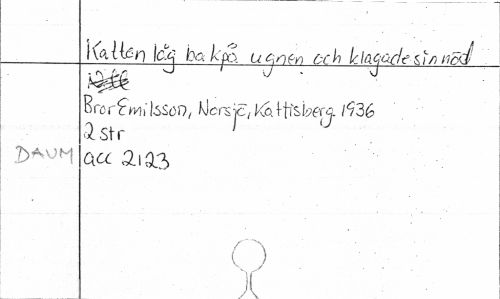 Katten låg bakpå ugnen och klagade sin nöd
Bror Emilsson, Norsjö, Kattisberg 1936
2 str
DAUM acc 2123